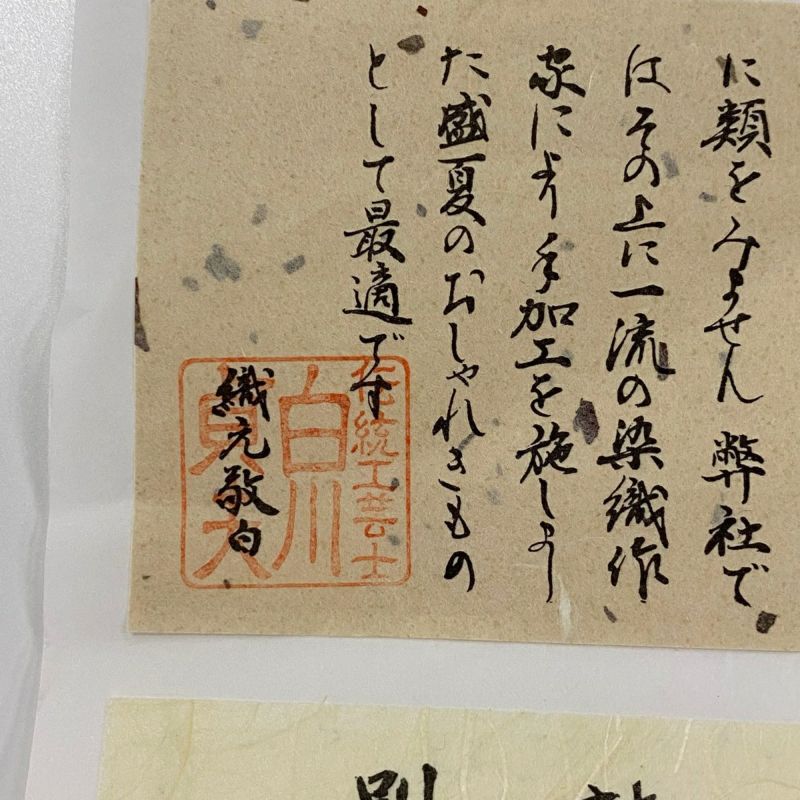 に類をみません 弊社で
はその上に一流の染織作
家により手加工を施しまし
た盛夏のおしゃれきもの
として最適です
織元敬白
伝統工芸士
白川
別